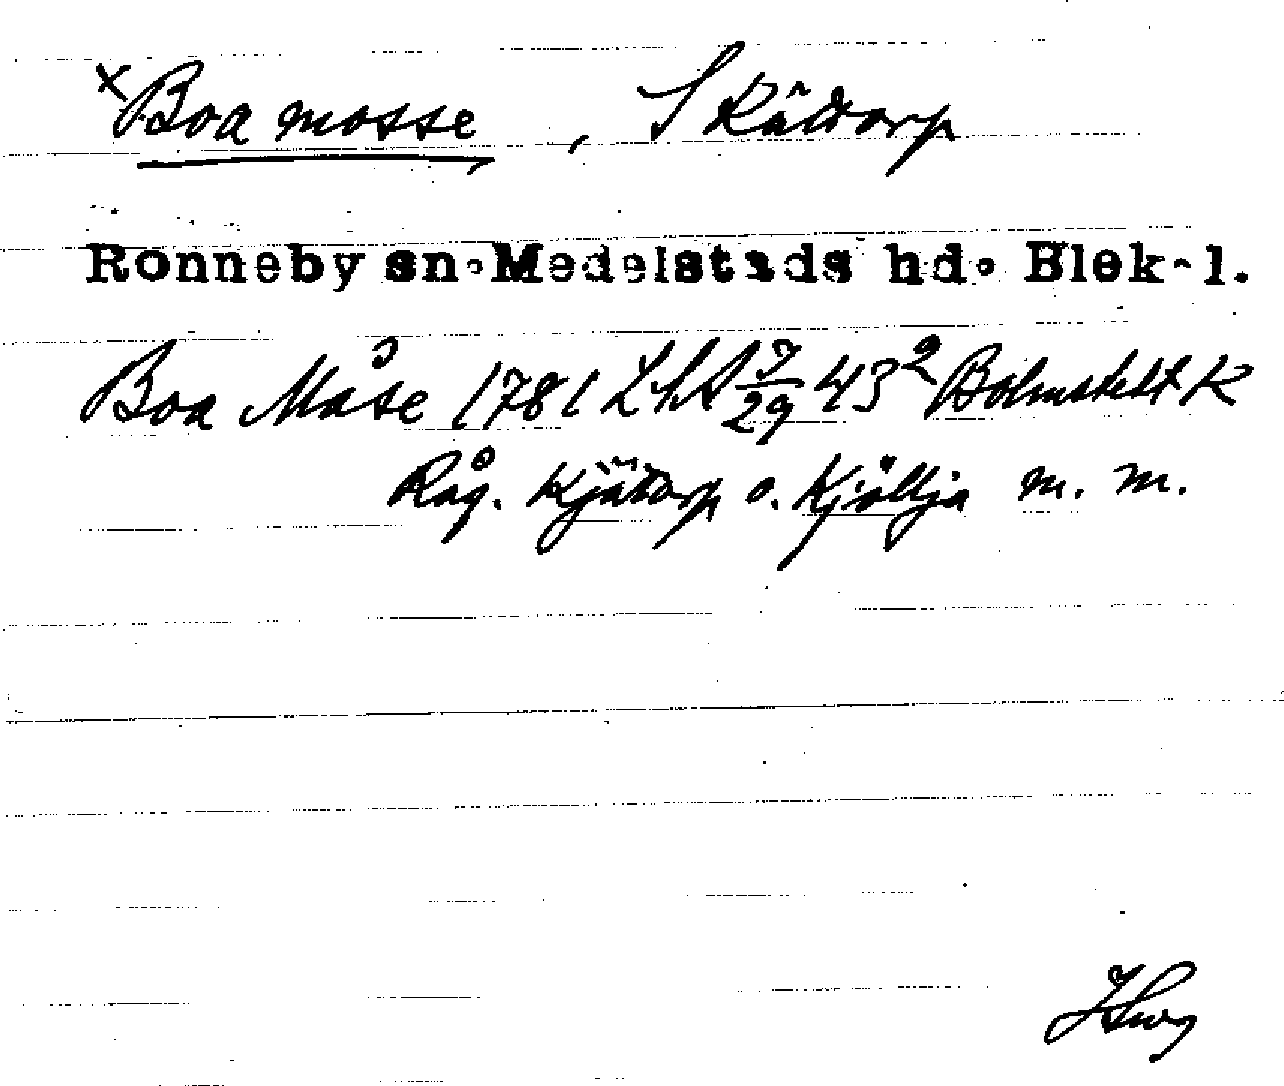 x Boa mosse, S Kätorp
Ronneby sn. Medelstads hd. Blek. l.
Boa Måse 1781 LSA 7/29 43² Bolmstedt K
Råg. Kjätorp o. Kjöllja m. m.